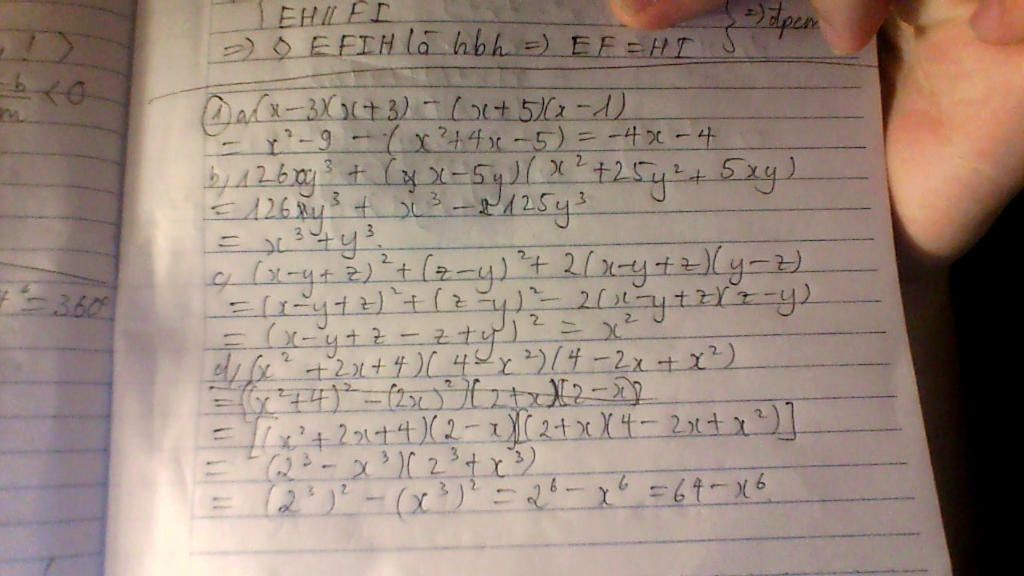 EH // FI
=> ◇ EFIH là hbh => EF = HI } => đpcm
, ! >
-b/m < 0
① a) (x-3)(x+3) - (x+5)(x-1)
= x² - 9 - (x² + 4x - 5) = -4x - 4
b) 126y³ + (x-5y)(x² + 25y² + 5xy)
= 126y³ + x³ - 125y³
= x³ + y³.
c) (x-y+z)² + (z-y)² + 2(x-y+z)(y-z)
= (x-y+z)² + (z-y)² - 2(x-y+z)(z-y)
= (x-y+z-z+y)² = x²
= 360°
d) (x² + 2x + 4)(4 - x²)(4 - 2x + x²)
= ((x²+4)² - (2x)²)(2+x)(2-x)
= [(x² + 2x + 4)(2-x)][(2+x)(4 - 2x + x²)]
= (2³ - x³)(2³ + x³)
= (2³)² - (x³)² = 2⁶ - x⁶ = 64 - x⁶